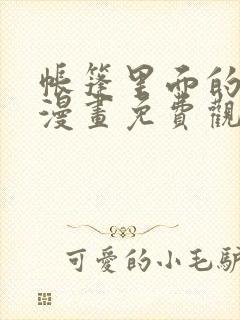 帳篷里面的
漫畫免費觀
可愛的小毛驴